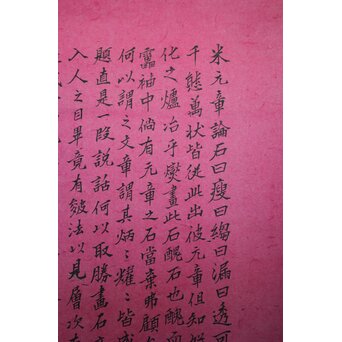 米元章論石曰瘦曰縐曰漏曰透可
千態萬狀皆從此出彼元章但知
化之爐冶乎燮畫此石醜石也醜而
靁袖中倘有元章之石當棄弗顧
何以謂之文章謂其炳〻耀〻皆成
題直是一段說話何以取勝畫石
入人之目畢竟有皴法以見層次